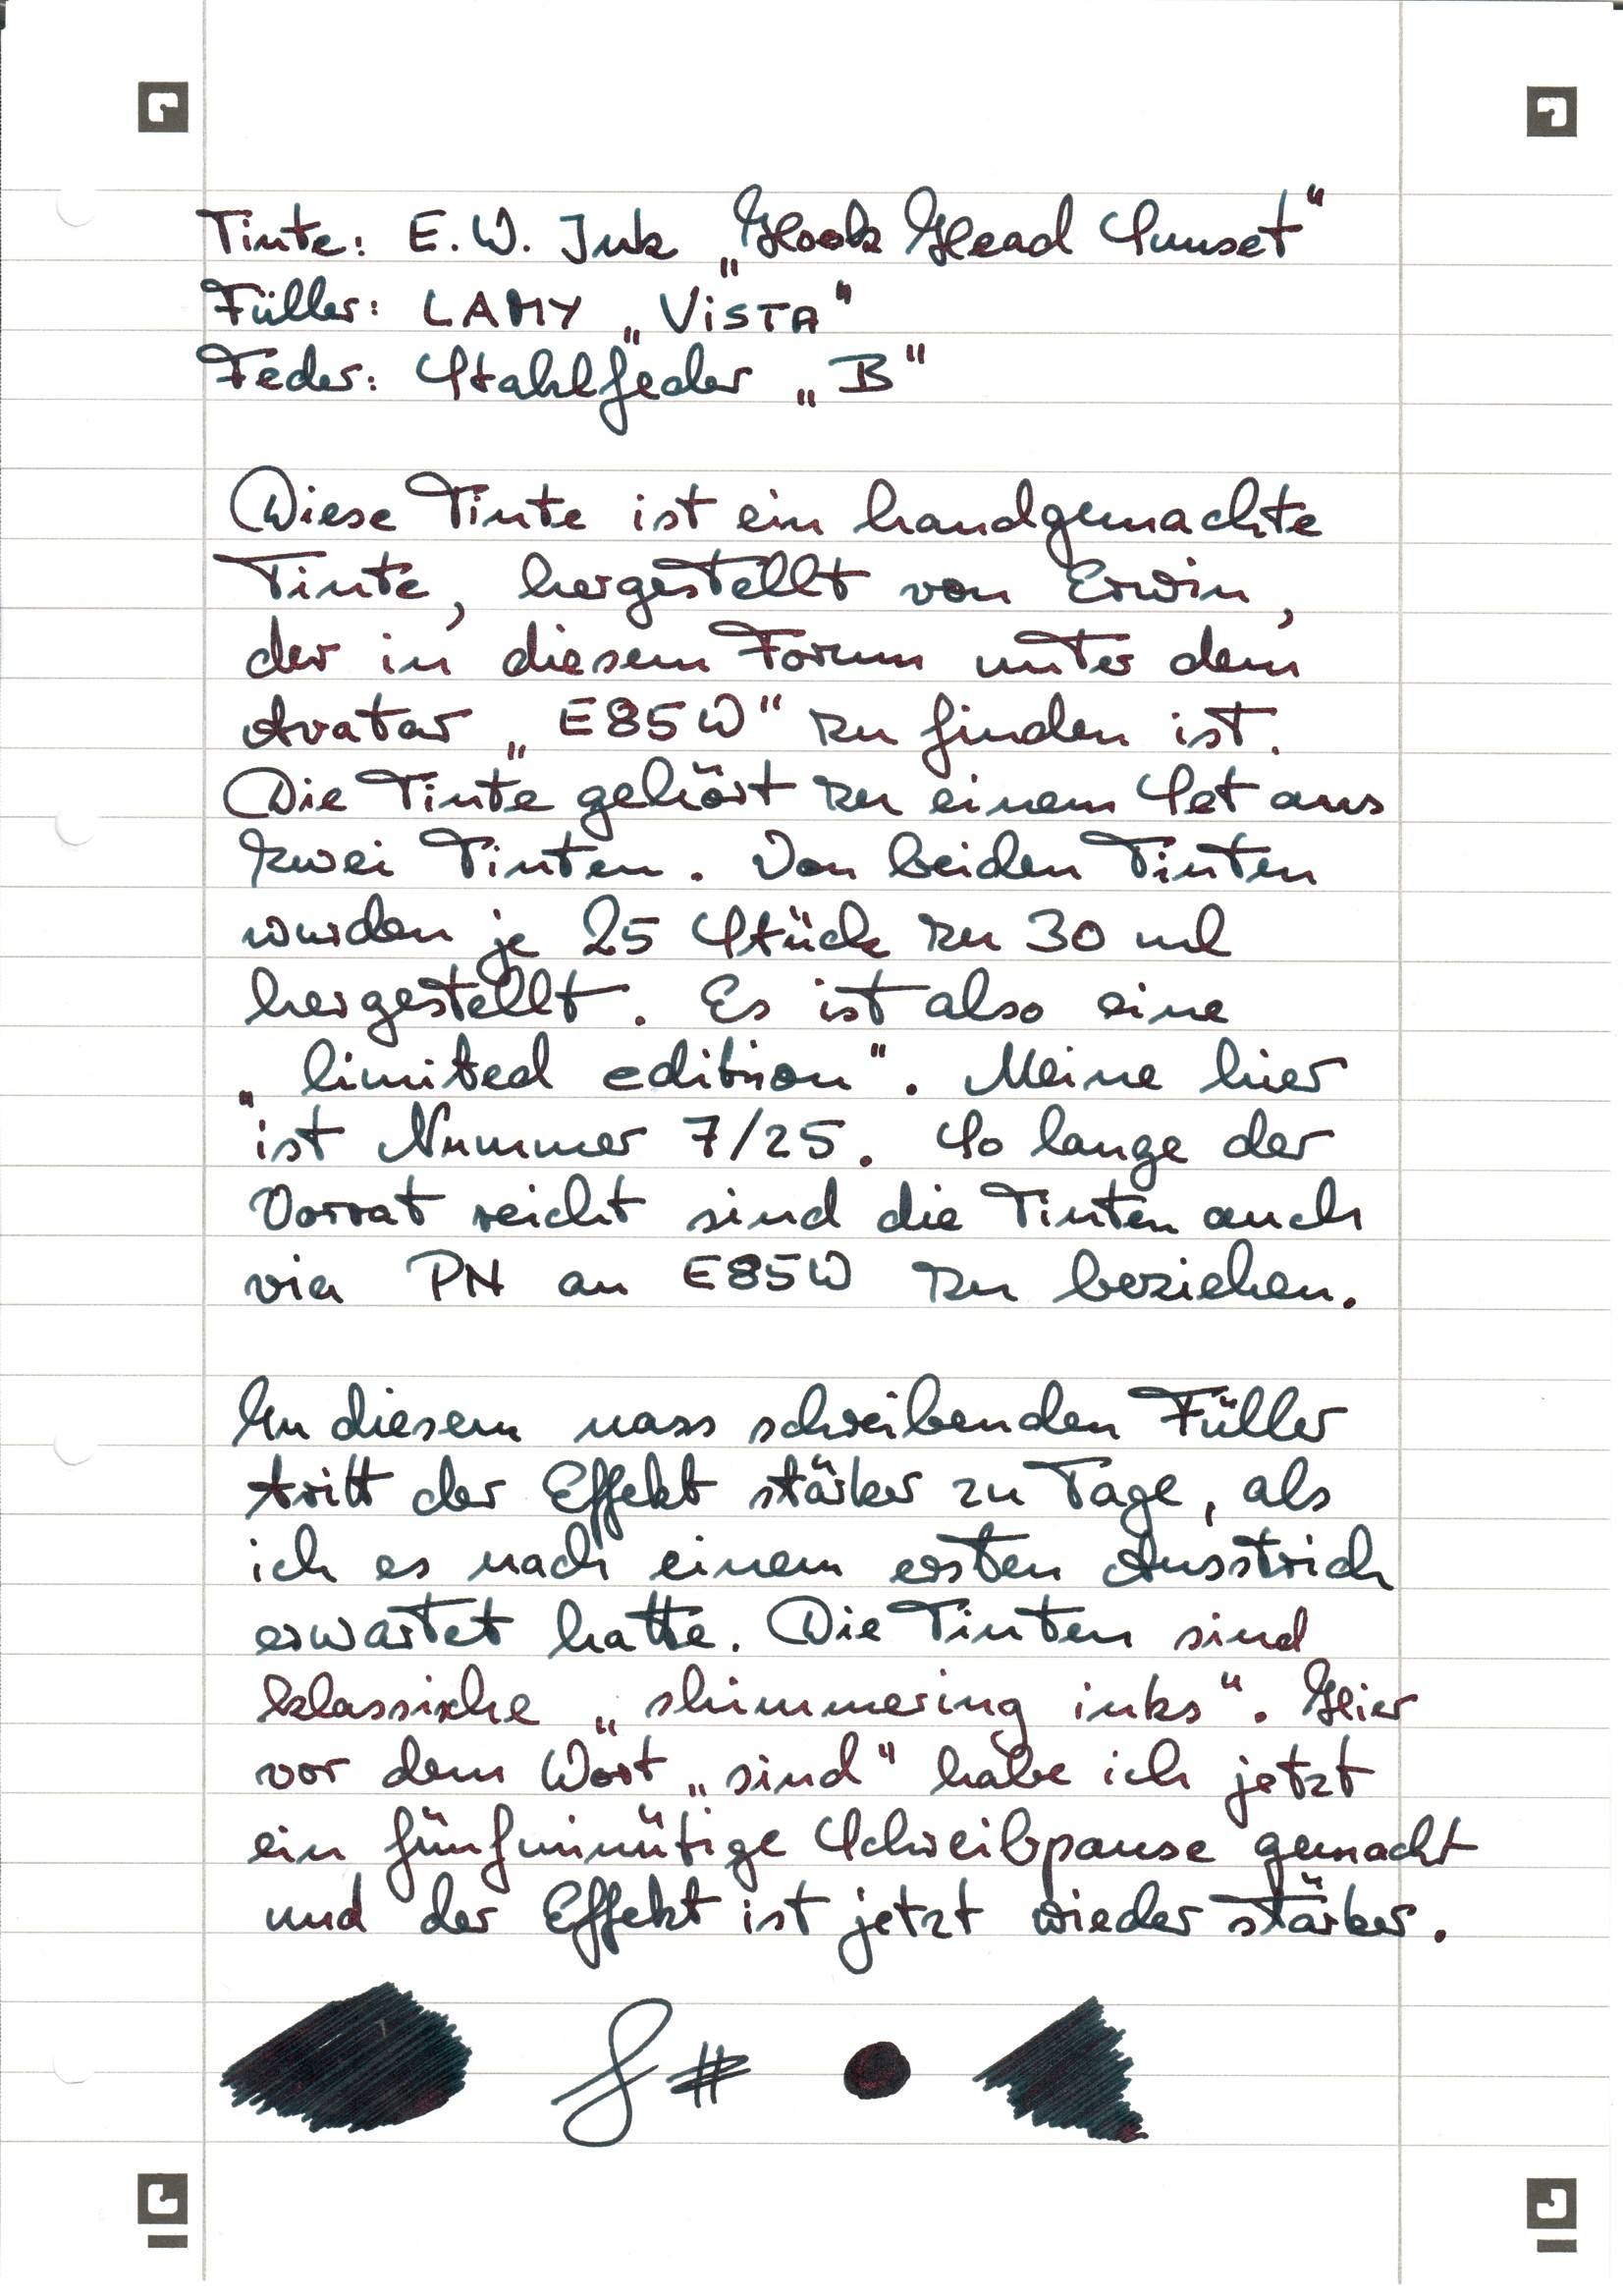 Tinte: E.W. Ink „Hook Head Sunset“
Füller: LAMY „ViSTA“
Feder: Stahlfeder „B“
Diese Tinte ist ein handgemachte
Tinte, hergestellt von Erwin,
der in diesem Forum unter dem
Avatar „E85W“ zu finden ist.
Die Tinte gehört zu einem Set aus
zwei Tinten. Von beiden Tinten
wurden je 25 Stück zu 30 ml
hergestellt. Es ist also eine
„limited edition“. Meine hier
ist Nummer 7/25. So lange der
Vorrat reicht sind die Tinten auch
via PN an E85W zu beziehen.
In diesem nass schreibenden Füller
tritt der Effekt stärker zu Tage, als
ich es nach einem ersten Ausstrich
erwartet hatte. Die Tinten sind
klassische „shimmering inks“. Hier
vor dem Wort „sind“ habe ich jetzt
ein fünfminütige Schreibpause gemacht
und der Effekt ist jetzt wieder stärker.
#